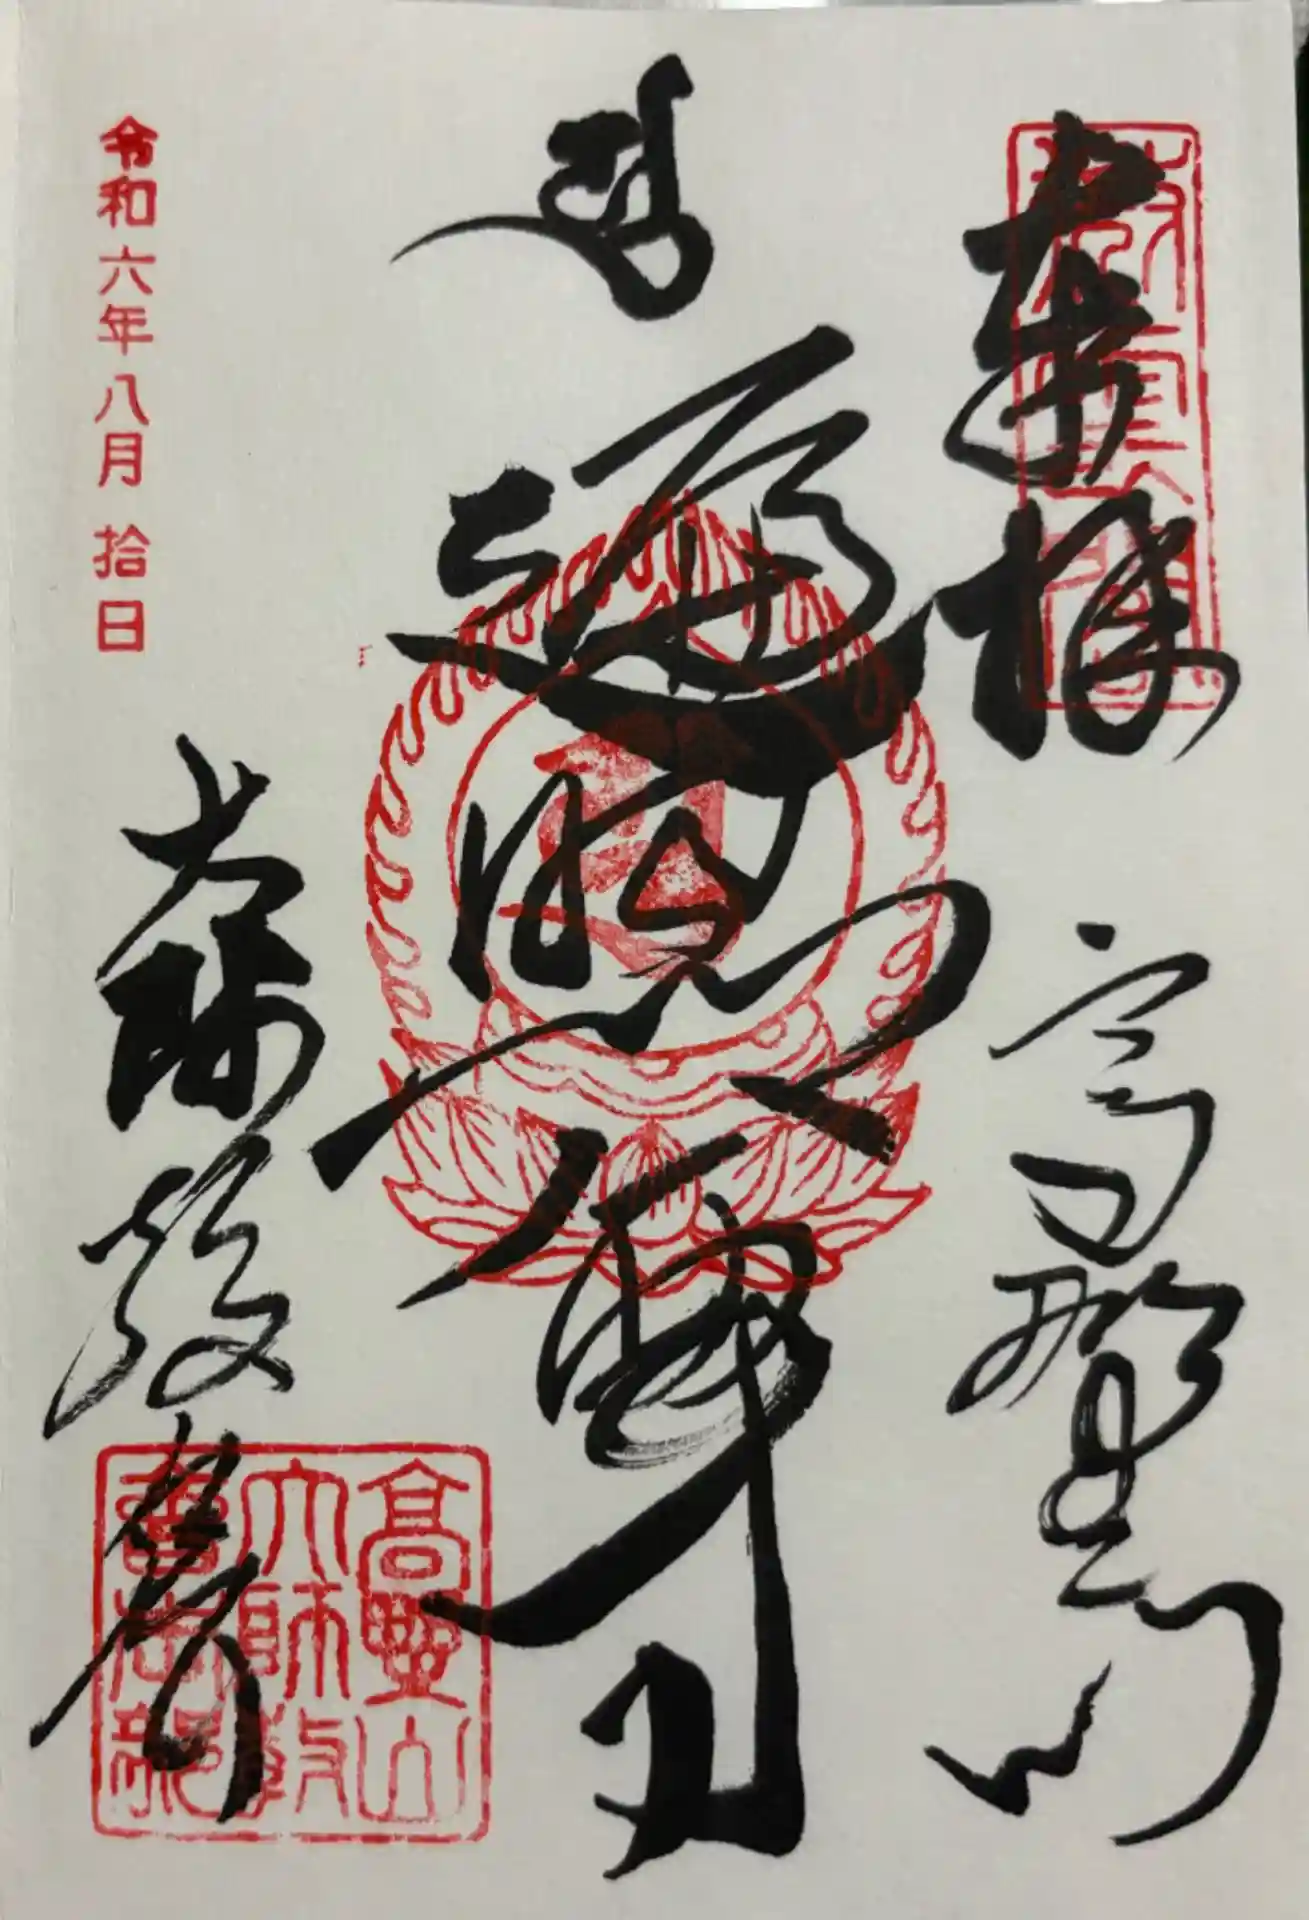 奉拝
高野山
遍照金剛
大師教会
令和六年八月拾日
高野山
大師教
會本部